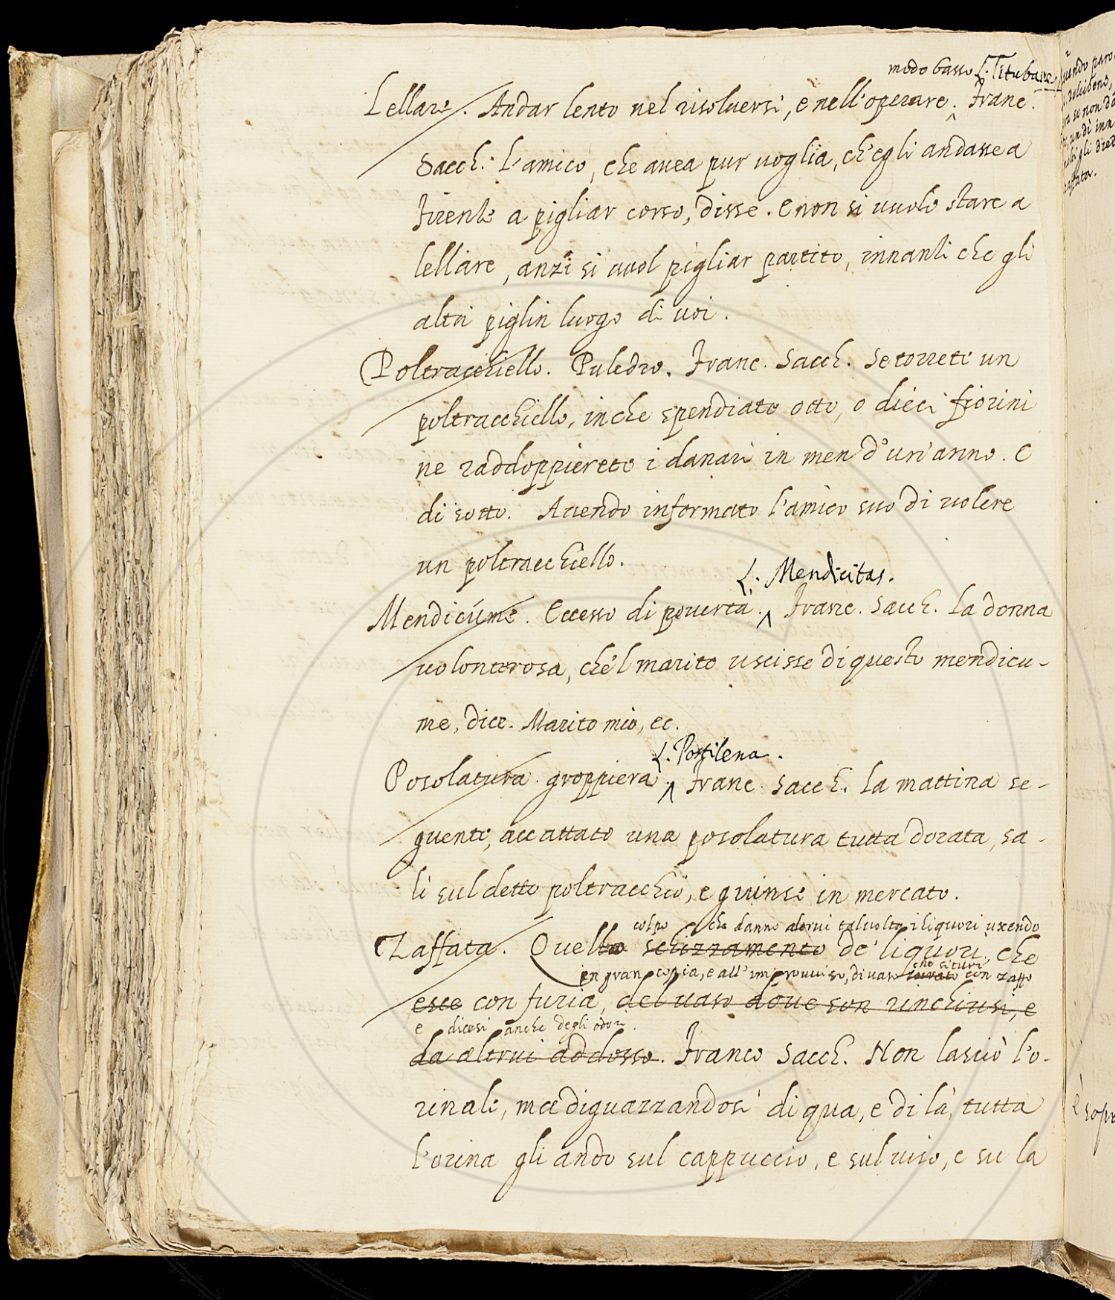 modo basso L. Titubare
Lellare. Andar lento nel risoluersi, e nell'operare. Franc.
Sacch. l'amico, che auea pur uoglia, ch'egli andasse a
Firenze a pigliar corso, disse. e non si uuole stare a
lellare, anzi si uuol pigliar partito, innanzi che gli
altri piglin luogo di uoi.
Poltracchiello. Puledro. Franc. Sacch. Se torrete un
poltracchiello, in che spendiate otto, o dieci fiorini
ne raddoppierete i danari in men d'un'anno. E
di sotto. Auendo informato l'amico suo di uolere
un poltracchiello.
L. Mendicitas.
Mendicume. Eccesso di pouertà. Franc. Sacch. la donna
uolonterosa, che'l marito uscisse di questo mendicu-
me, dice. Marito mio, ec.
L. Postilena.
Posolatura. groppiera Franc. Sacch. la mattina se-
guente, accattato una posolatura tutta dorata, sa-
lì sul detto poltracchio, e guinse in mercato.
colpo, che danno altrui talvolta i liquori uscendo
Zaffata. Quello schizzamento de' liquori, che
in gran copia, e all'improuuiso, di uaso che si turi con zaffo
esce con furia, del uaso doue son rinchiusi, e
e dicesi anche degli odori.
da altrui addosso. Franco Sacch. Non lasciò l'o-
rinale, ma diguazzandosi di qua, e di là, tutta
l'orina gli andò sul cappuccio, e sul uiso, e su la